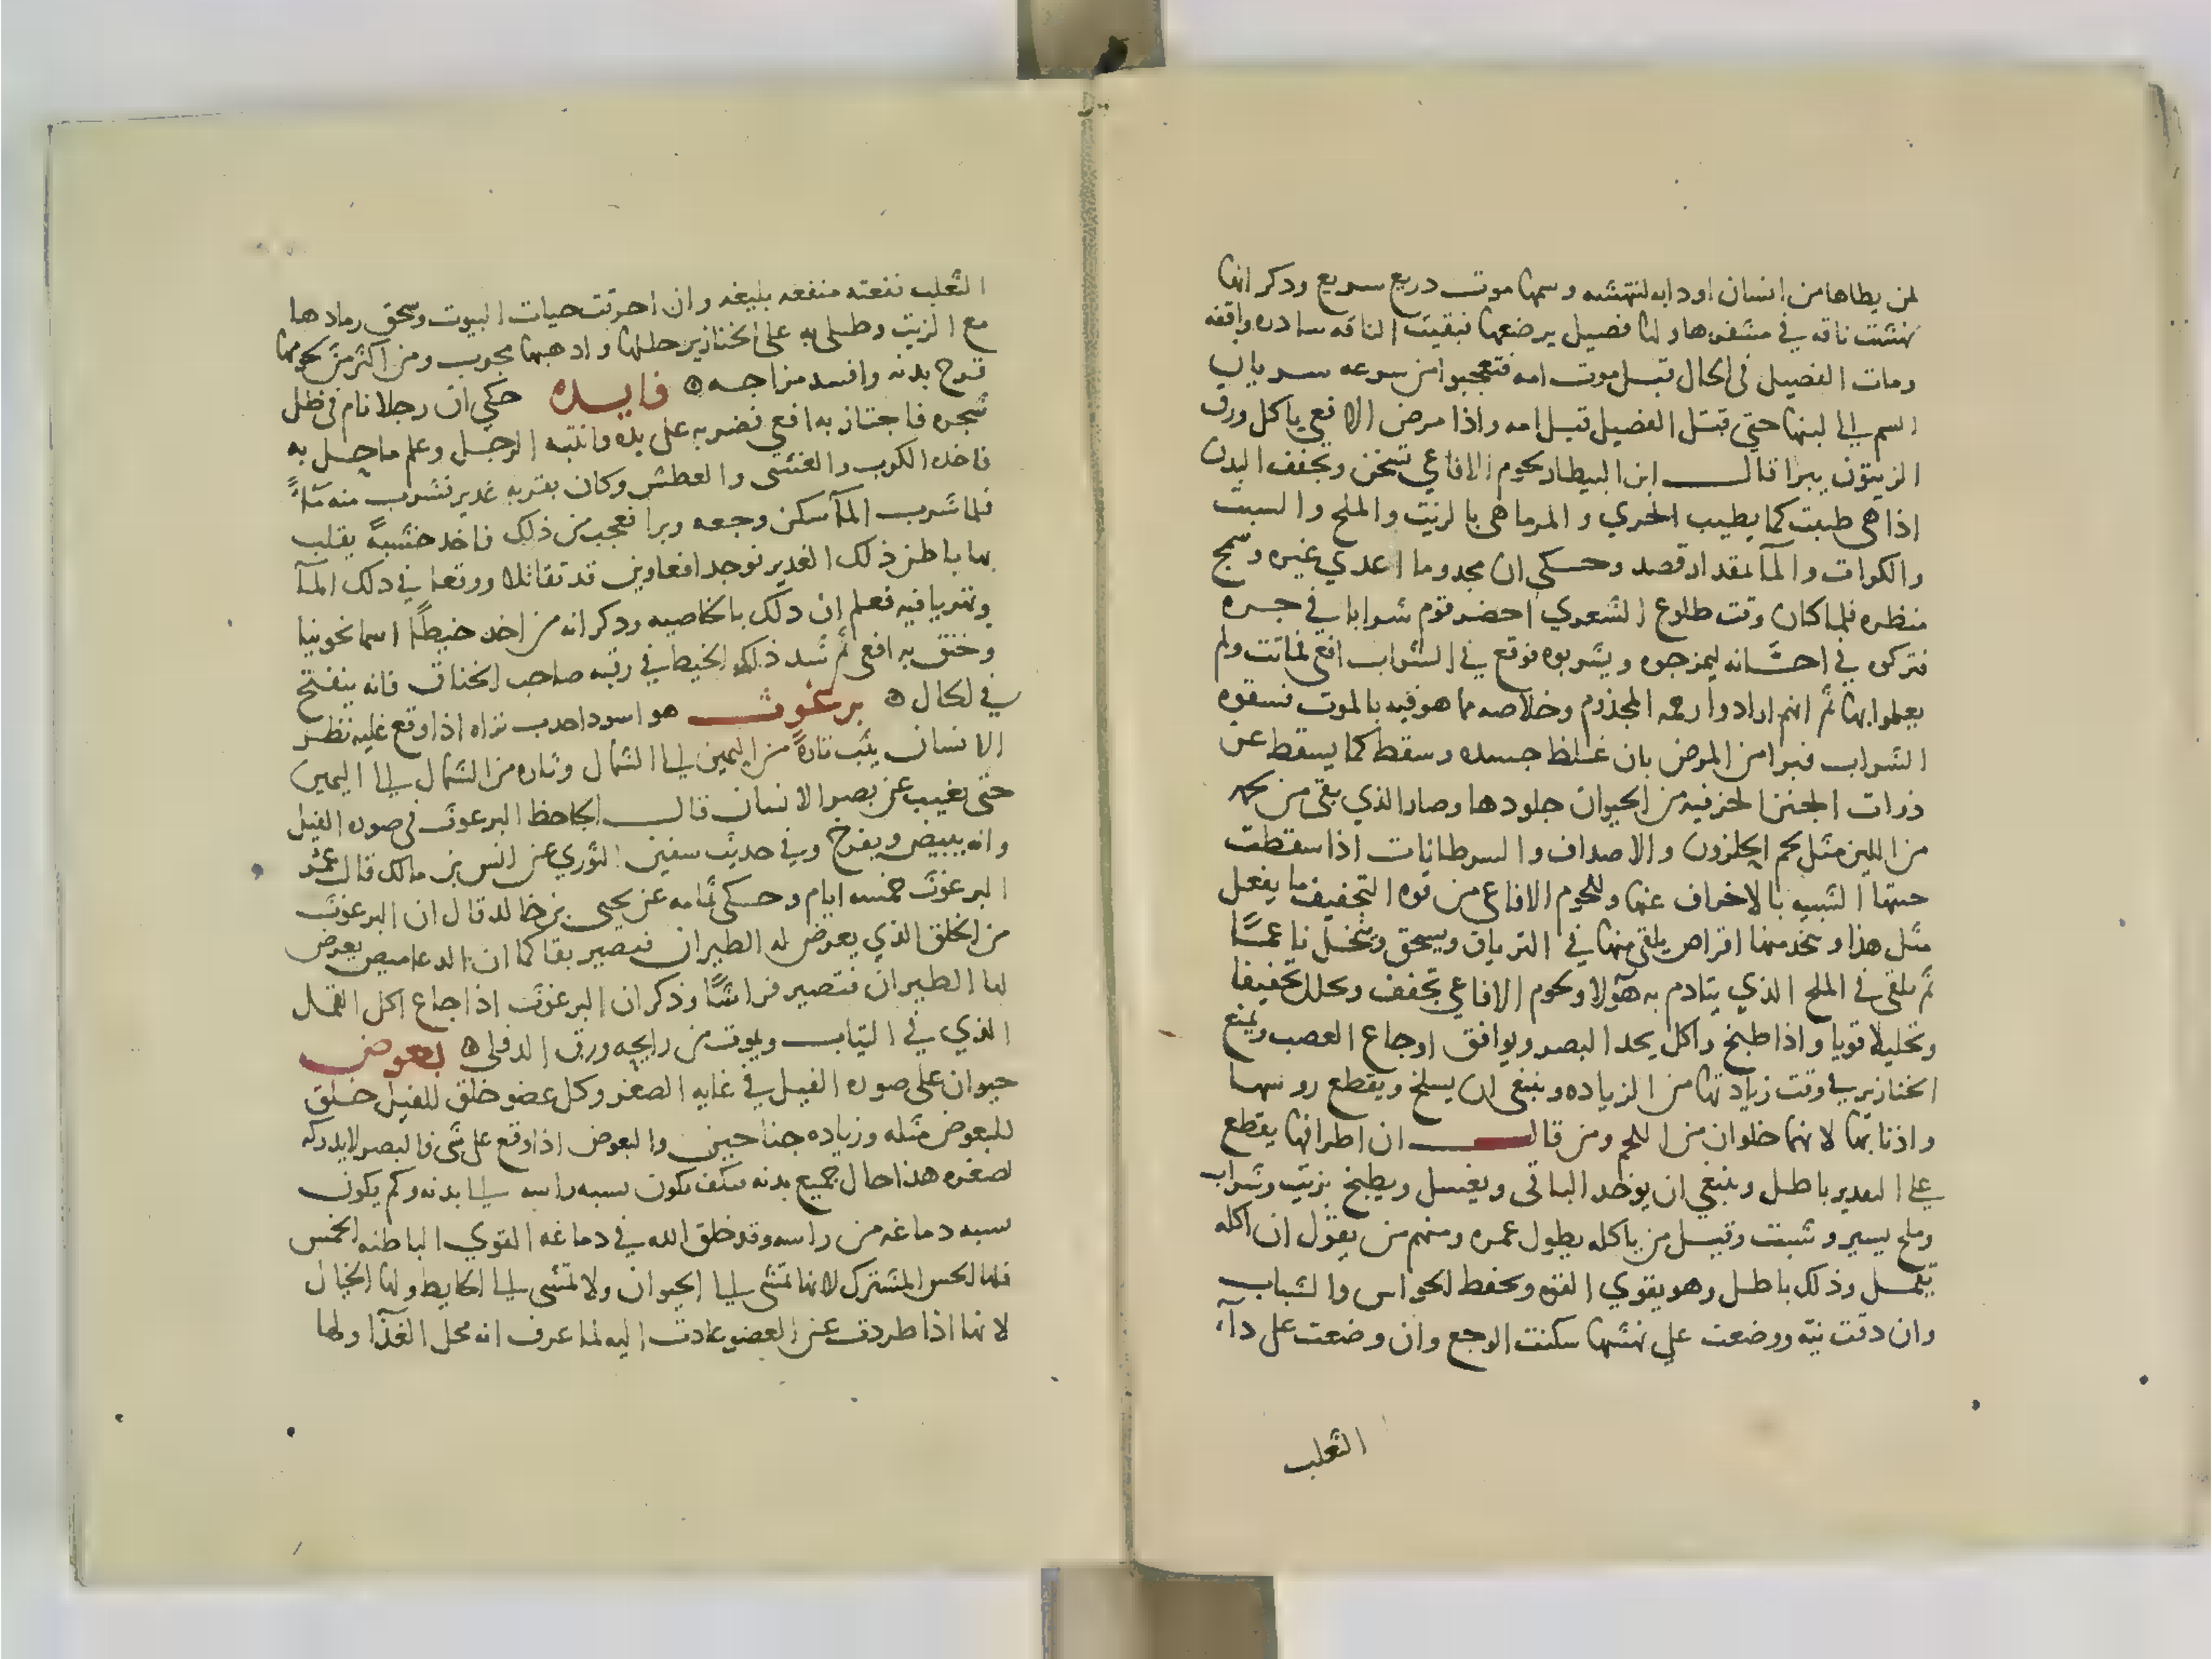 لمن يطاها من انسان او دابه لتنهشه وسمها موت دريع سريع ودكر انها
نهشت ناقه في مشفرها ولها فصيل يرضعها فبقيت الناقه سادره واقفه
ومات الفصيل في الحال قبل موت امه فتعجبوا من سرعه سريان
السم الي لبنها حتي قتل الفصيل قبل امه واذا مرض الافعي ياكل ورق
الزيتون يبرا قال ابن البيطار لحوم الافاعي تسخن وتجفف البدن
اذا هي طبعت كما يطيب الجري و المرماهي بالزيت والملح والسبت
والكرات والمآ بمقدار قصد وحكي ان مجدوما اعدي غيره وسمج
منظره فلما كان وقت طلوع الشعري احضر قوم شرابا في جره
فتركوه في احشانه ليمزجوه ويشربوه فوقع في الشراب افعي فماتت ولم
يعلموا بها ثم انهم ارادوا رحمه المجذوم وخلاصه مما هو فيه بالموت فسقوه
الشراب فبرا من المرض بان غلظ جسده وسقط كما يسقط عن
ذوات الجنز الخزفيه من الحيوان جلودها وصار الذي بقي من لحمه
من اللين مثل لحم الحلزون والاصداف والسرطانات اذا سقطت
عنها الشبيه بالاخراف عنها وللحوم الافاعي من قوه التجفيف ما يفعل
مثل هذا ويتخد منها اقراص يلقي منها في الترياق ويسحق وينخل ناعمًا
ثم يلقي في الملح الذي يتادم به هولا ولحوم الافاعي تجفف وتحلل تجفيفا
وتحليلا قويا واذا طبخ واكل يحد البصر ويوافق اوجاع العصب ويمنع
الخنازير في وقت زيادتها من الزياده وينبغي ان يسلخ ويقطع روسها
واذنابها لانها خلوان من اللحم ومن قال ان اطرافها يقطع
علي التقدير باطل وينبغي ان يوخد الباقي ويغسل ويطبخ بزيت وشراب
وملح يسير وشبت وقيل من ياكله يطول عمره ومنهم من يقول ان اكله
يقمل وذلك باطل وهو يقوي القوه ويحفظ الحواس والشباب
وان دقت نيه ووضعت علي نهشها سكنت الوجع وان وضعت علي دآء
الثعلب
الثعلب نفعته منفعه بليغه وان احرقت حيات البيوت وسحق رمادها
مع الزيت وطلي به علي الخنازير حللها وادهبها مجرب ومن اكثر من لحومها
قرح بدنه وافسد مزاجه ۞ فايده حكي ان رجلا نام في ظل
شجره فاجتاز به افعي فضربه علي يده فانتبه الرجل وعلم ما حصل به
فاخده الكرب والغشي والعطش وكان بقربه غدير فشرب منه مآءً
فلما شرب المآ سكن وجعه وبرا فعجب من ذلك فاخد خشبةً يقلب
بها باطن ذلك الغدير فوجد افعاوين قد تقاتلا ووقعا في دلك المآ
وتهريا فيه فعلم ان دلك بالخاصيه ودكر انه من اخد خيطًا اسمانجونيا
وخنق به افعي ثم شد ذلك الخيط في رقبه صاحب الخناق فانه ينفتح
في الحال ۞ برغوث هو اسود احدب نزاه اذا وقع عليه نظر
الانسان يثب تارةً من اليمين الي الشمال وتاره من الشمال الي اليمين
حتي يغيب عن بصر الانسان قال الجاحظ البرغوث في صوره الفيل
وانه يبيض ويفرخ وفي حديث سفين الثوري عن انس بن مالك قال عمر
البرغوث خمسه ايام وحكي ثمامه عن يحيي بن خالد قال ان البرغوث
من الخلق الذي يعرض له الطيران فيصير بقا كما ان الدعاميص يعرض
لها الطيران فتصير فراشًا وذكر ان البرغوث اذا جاع اكل القمل
الذي في الثياب ويموت من رايحه ورق الدفلي ۞ بعوض
حيوان علي صوره الفيل في غايه الصغر وكل عضو خلق للفيل خلق
للبعوض مثله وزياده جناحين والبعوض اذا وقع علي شي فالبصر لا يدركه
لصغره هذا حال جميع بدنه فكيف يكون نسبه راسه الي بدنه وكم يكون
نسبه دماغه من راسه وقد خلق الله في دماغه القوي الباطنه الخمس
فلها الحس المشترك لانها تمشي الي الحيوان ولا تمشي الي الحايط ولها الخيال
لانها اذا طردت عن العضو عادت اليه لما عرف انه محل الغذآ ولها